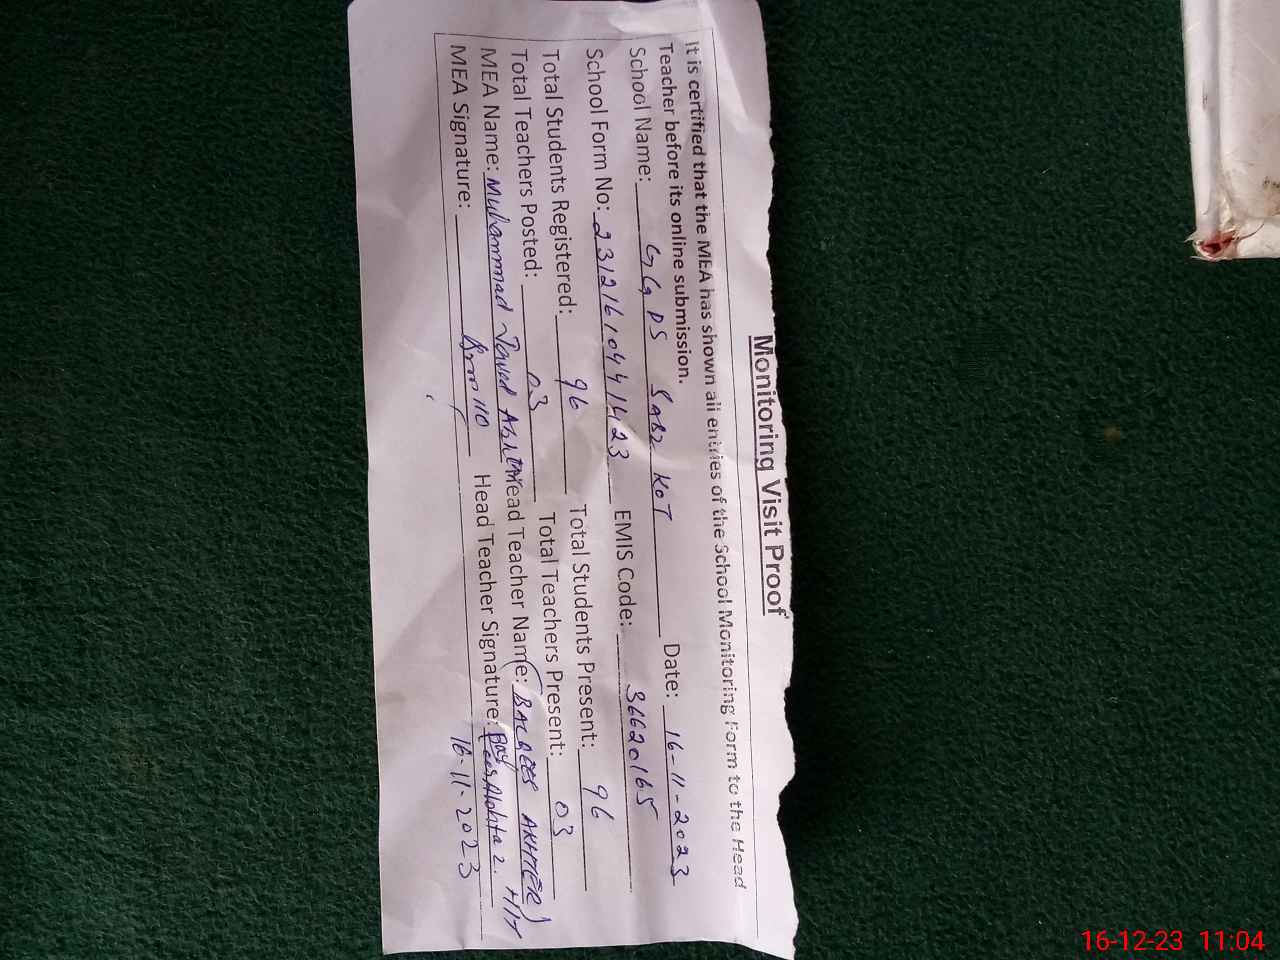 Monitoring Visit Proof
It is certified that the MEA has shown all entries of the School Monitoring Form to the Head
Teacher before its online submission.
School Name: GGPS SABZ KOT Date: 16-11-2023
School Form No: 23121610441423 EMIS Code: 36620165
Total Students Registered: 96 Total Students Present: 96
Total Teachers Posted: 03 Total Teachers Present: 03
MEA Name: Muhammad Head Teacher Name: (BALQEES AKHTER) H/T
MEA Signature: Head Teacher Signature:
16-11-2023
16-12-23 11:04